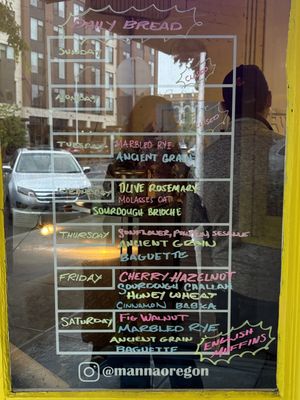 DAILY BREAD
SUNDAY
CLOSED
MONDAY
CLOSED
TUESDAY MARBLED RYE
ANCIENT GRAIN
WEDNESDAY OLIVE ROSEMARY
MOLASSES OAT
SOURDOUGH BRIOCHE
THURSDAY SUNFLOWER, POPPY SESAME
ANCIENT GRAIN
BAGUETTE
FRIDAY CHERRY HAZELNUT
SOURDOUGH CHALLAH
HONEY WHEAT
CINNAMON BABKA
SATURDAY FIG WALNUT
MARBLED RYE
ANCIENT GRAIN
BAGUETTE
ENGLISH MUFFINS
@mannaoregon